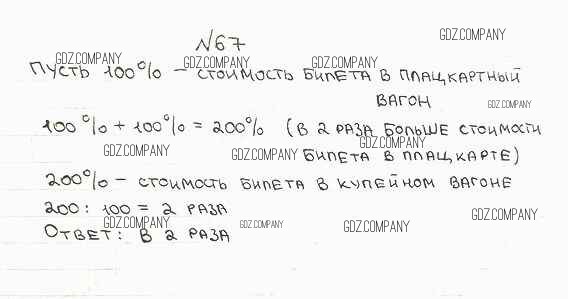 №67
GDZ.COMPANY
GDZ.COMPANY GDZ.COMPANY GDZ.COMPANY
Пусть 100% – стоимость билета в плацкартный
вагон
GDZ.COMPANY
100% + 100% = 200% (в 2 раза больше стоимости
GDZ.COMPANY GDZ.COMPANY GDZ.COMPANY
билета в плацкарте)
200% – стоимость билета в купейном вагоне
200 : 100 = 2 раза
GDZ.COMPANY GDZ.COMPANY GDZ.COMPANY GDZ.COMPANY
Ответ: в 2 раза